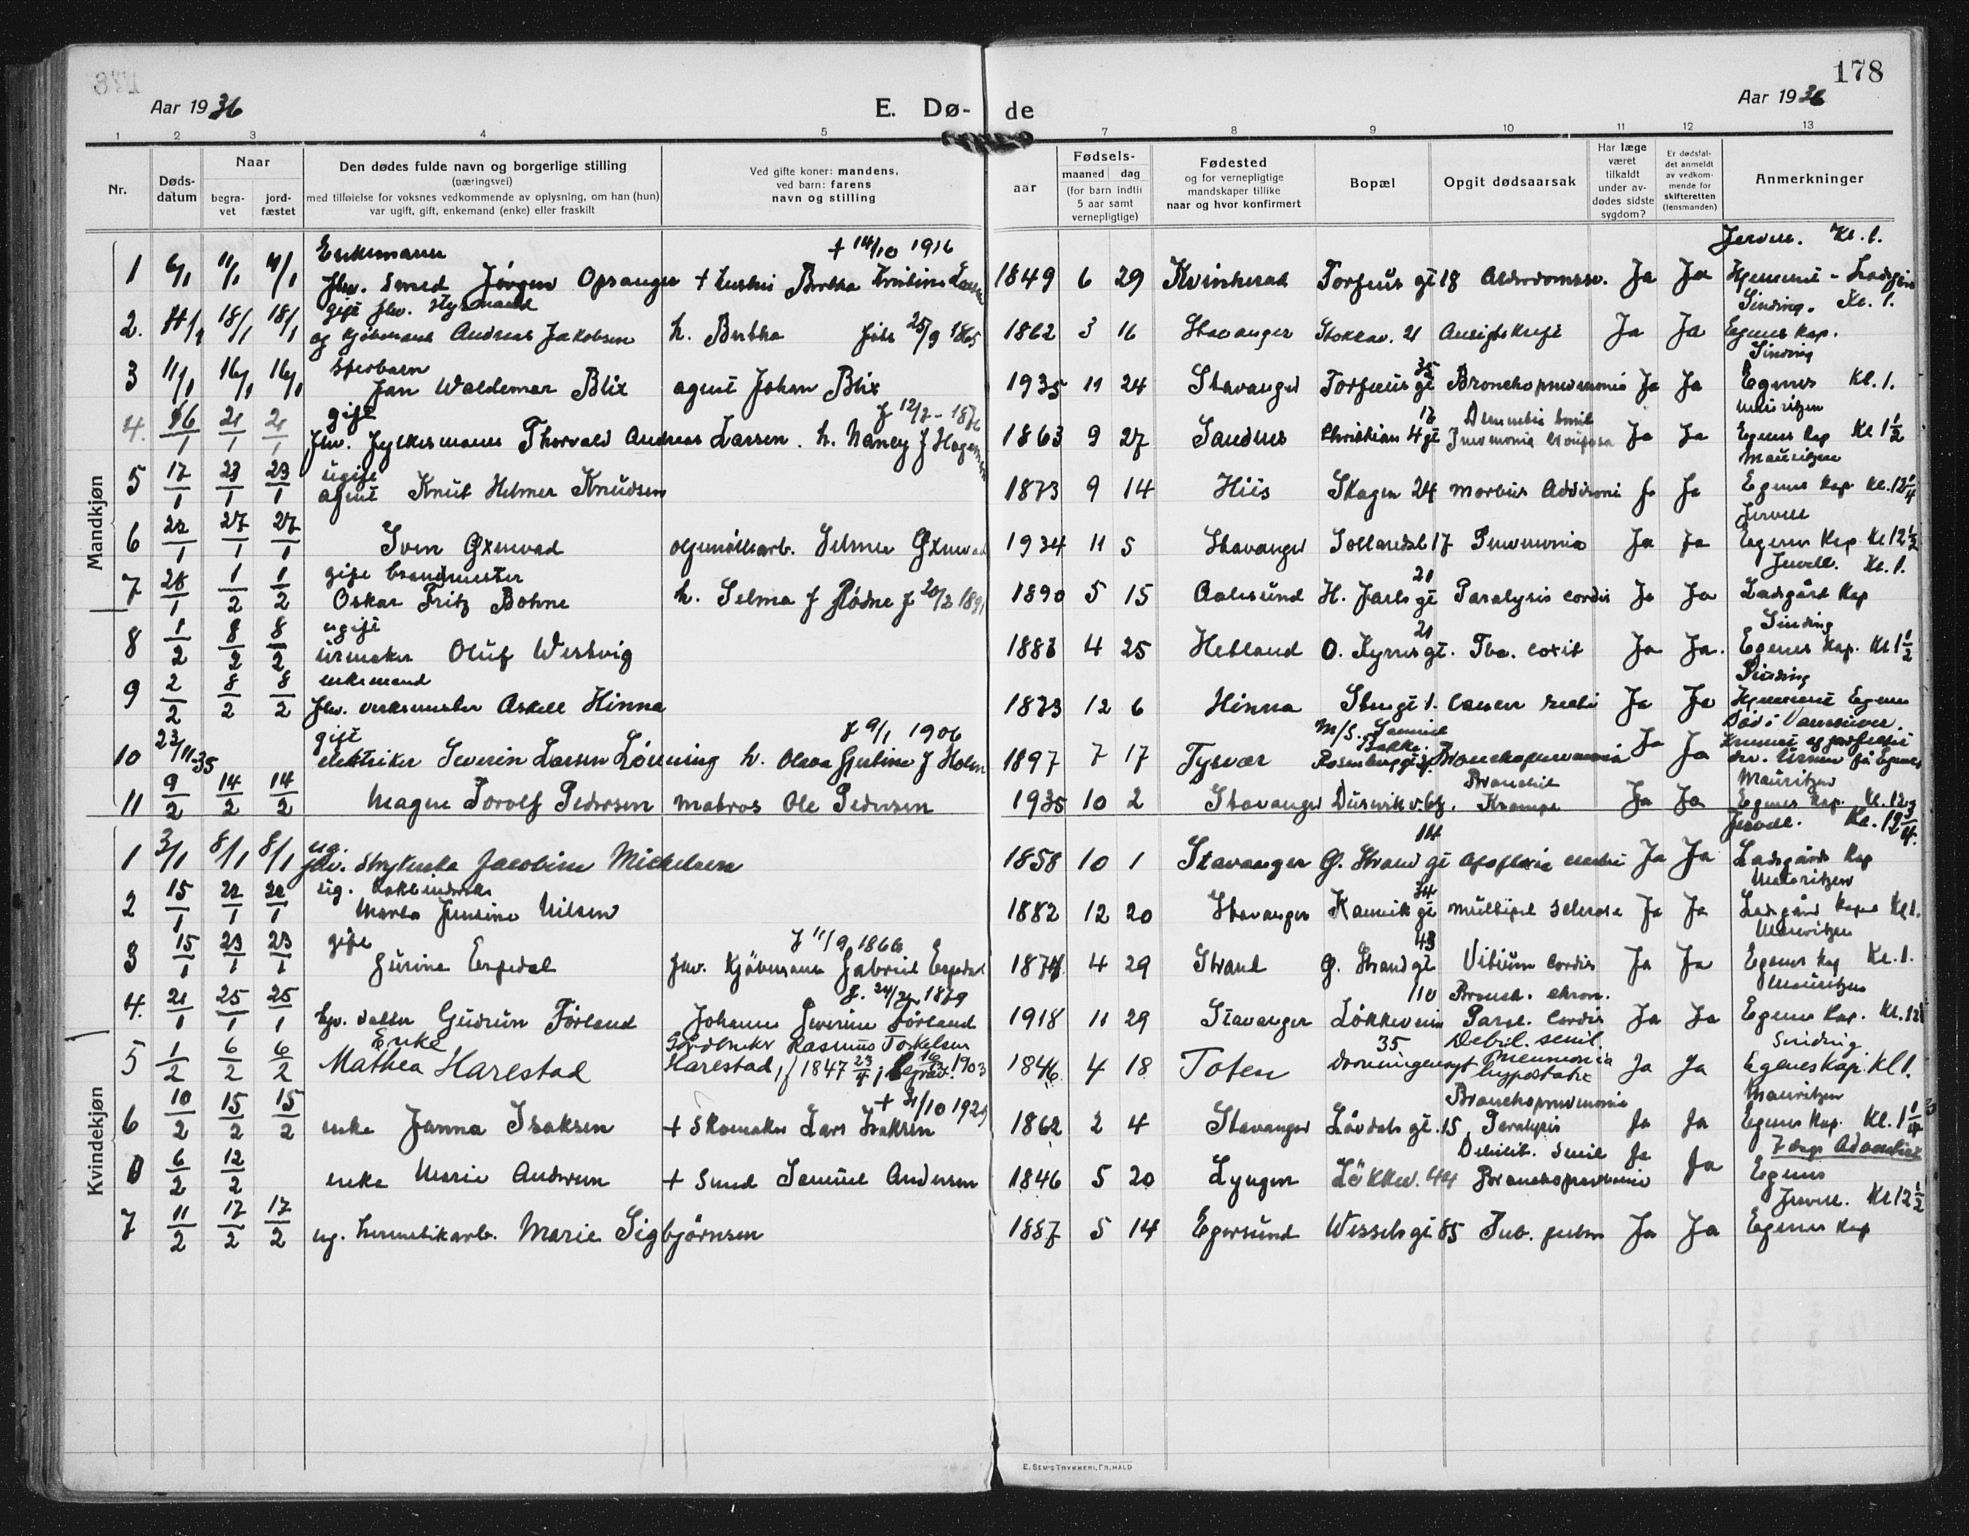 178
Aar 1936 E. Dø- de Aar 1936
1 2 3 4 5 7 8 9 10 11 12 13
Nr. Døds-datum Naar begra-vet jord-fæstet Den dødes fulde navn og borgerlige stilling (næringsvei) med tilføielse for voksnes vedkommende av oplysning, om han (hun) var ugift, gift, enkemand (enke) eller fraskilt Ved gifte koner: mandens, ved barn: farens navn og stilling aar Fødsels- maaned dag (for barn indtil 5 aar samt vernepligtige) Fødested og for vernepligtige mandskaper tillike naar og hvor konfirmert Bopæl Opgit dødsaarsak Har læge været tilkaldt under av-dødes sidste sygdom? Er dødsfal-det anmeldt av vedkom-mende for skifteretten (lensmanden) Anmerkninger
Mandkjøn
Enkemann + 14/10 1916 Jervell. Kl. 1.
1 6/1 11/1 11/1 fhv. smed Jørgen Opsanger + hustru Bertha Kristine 1849 6 29 Kvinherad Torfæus gt 18 Ja Ja Hjemmet -
gift fhv. Sinding. Kl. 1.
2. 18/1 18/1 og kjøbmand Andreas Jakobsen h. Bertha født 25/9 1865 1862 3 16 Stavanger Stokkav. 21 Ja Ja Egenes Kap.
spedbarn 35 Sinding
3 11/1 16/1 16/1 Jan Waldemar Blix agent Johan Blix 1935 11 24 Stavanger Torfæus gt Bronchopneumonia Ja Ja Egenes Kl. 1.
gift f 12/7 - 1876 Mauritzen
4. 16/1 21/1 21/1 fhv. Thorvald Andreas Larsen. h. Nancy f Hagemann 1863 9 27 Sandnes Christian 4 gt Ja Ja Egenes Kap Kl 1 1/2
ugift Mauritzen
5 17/1 23/1 23/1 agent Knut Helmer Knudsen 1873 9 14 Hiis Skagen 24 Morbus Addisoni Ja Ja Egenes Kap Kl. 12 1/4
Jervell
6 22/1 27/1 27/1 Sven Øxnevad 1934 11 5 Stavanger 17 Pneumonia Ja Ja Egenes Kap Kl 12 1/2
gift brandmester 21 Jervell. Kl. 1.
7 28/1 1/2 1/2 Oskar Fritz Bohne h. Selma f Rødne f 20/2 1891 1890 5 15 Aalesund H. Jarls gt Paralysis cordis Ja Ja Ladegård Kap
ugift 21 Sinding
8 1/2 8/2 8/2 urmaker Oluf Westvig 1883 4 25 Hetland O. Kyrres gt. Tbc. coxit Ja Ja. Egenes Kap. Kl 1 1/2
enkemand Sinding
9 2/2 8/2 8/2 fhv. verksmester Askell Hinna 1873 12 6 Hinna Sten gt 1. Cancer recti Ja Ja Hjemmet Egenes
gift f 9/1 1906 M/S. Samuel Bakke. Død i Vancouver.
10 23/11-35 elektriker Severin Larsen Lönning h. Olava Gjertine f Holm 1897 7 17 Tysvær Rosenberg gt Bronchopneumonia Ja Ja
Mauritzen
11 9/2 14/2 14/2 Magne Torolf Pedersen matros Ole Pedersen 1935 10 2 Stavanger Dusevik v. Krampe Ja Ja Egenes Kap. Kl. 12
Kvindekjøn
ug. 14 Jervell. Kl. 12 3/4.
1 3/1 8/1 8/1 fhv. Strykerske Jacobine Mickelsen 1858 10 1 Stavanger G. Strand gt Apoplexia cerebri Ja Ja Ladegårds Kap
ug. 34 Mauritzen
2 15/1 22/1 22/1 Marta Jensine Nilsen 1882 12 20 Stavanger Kannik gt Multipel sclerose Ja Ja Ladegård Kapel Kl 1.
gift f 11/9 1866 43 Mauritzen
3 15/1 23/1 23/1 Gurine Espedal fhv. kjøbmann Gabriel Espedal 1874 4 29 Strand G. Strand gt Vitium cordis Ja Ja Egenes Kap Kl. 1.
1879 110 Bronch. chron. Mauritzen
4. 21/1 25/1 25/1 hjv. datter Gudrun Førland Johannes Severin Førland 1918 11 29 Stavanger Løkkeveien Paral. Cordis Ja Ja Egenes Kap. Kl. 12
Enke Gårdbruker Rasmus Torkelsen 35 Debil. senil. Sinding
5 1/2 6/2 6/2 Mathea Harestad Harestad, f 1847 23/4, begrav. 1903 1846 4 18 Toten Dronningensgt Pneumonia hypostatic Ja Ja Egenes Kap. Kl 1.
+ 21/10 1929 Bronchopneumonia Mauritzen
6 10/2 15/2 15/2 enke Janna Isaksen + Skomaker Lars Isaksen 1862 2 4 Stavanger Løvdals gt. 15 Paralysis Ja Ja Egenes Kap. Kl. 1 1/4
Debilit. senil 7 dags Adventist
0 6/2 12/2 enke Marie Andersen + Smed Samuel Andersen 1846 5 20 Lyngen Lökkev. 44 Bronchopneumonia Ja Ja Egenes
Jervell. Kl 12 1/2
7 11/2 17/2 17/2 ug. hermetikarb. Marie Sigbjørnsen 1887 5 14 Egersund Wessels gt 85 Tub. pulm Ja Ja Egenes Kap
E. SEM'S TRYKKERI, FR.HALD